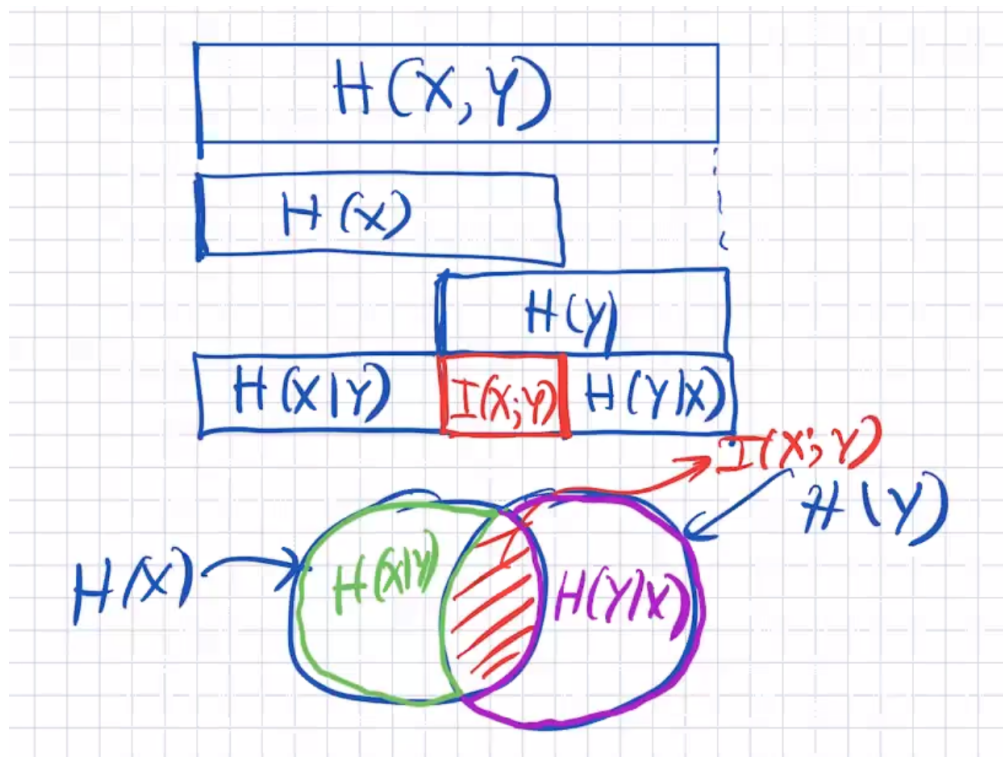 H(X,Y)
H(X)
H(Y)
H(X|Y) I(X;Y) H(Y|X)
I(X;Y)
H(Y)
H(X) H(X|Y) H(Y|X)